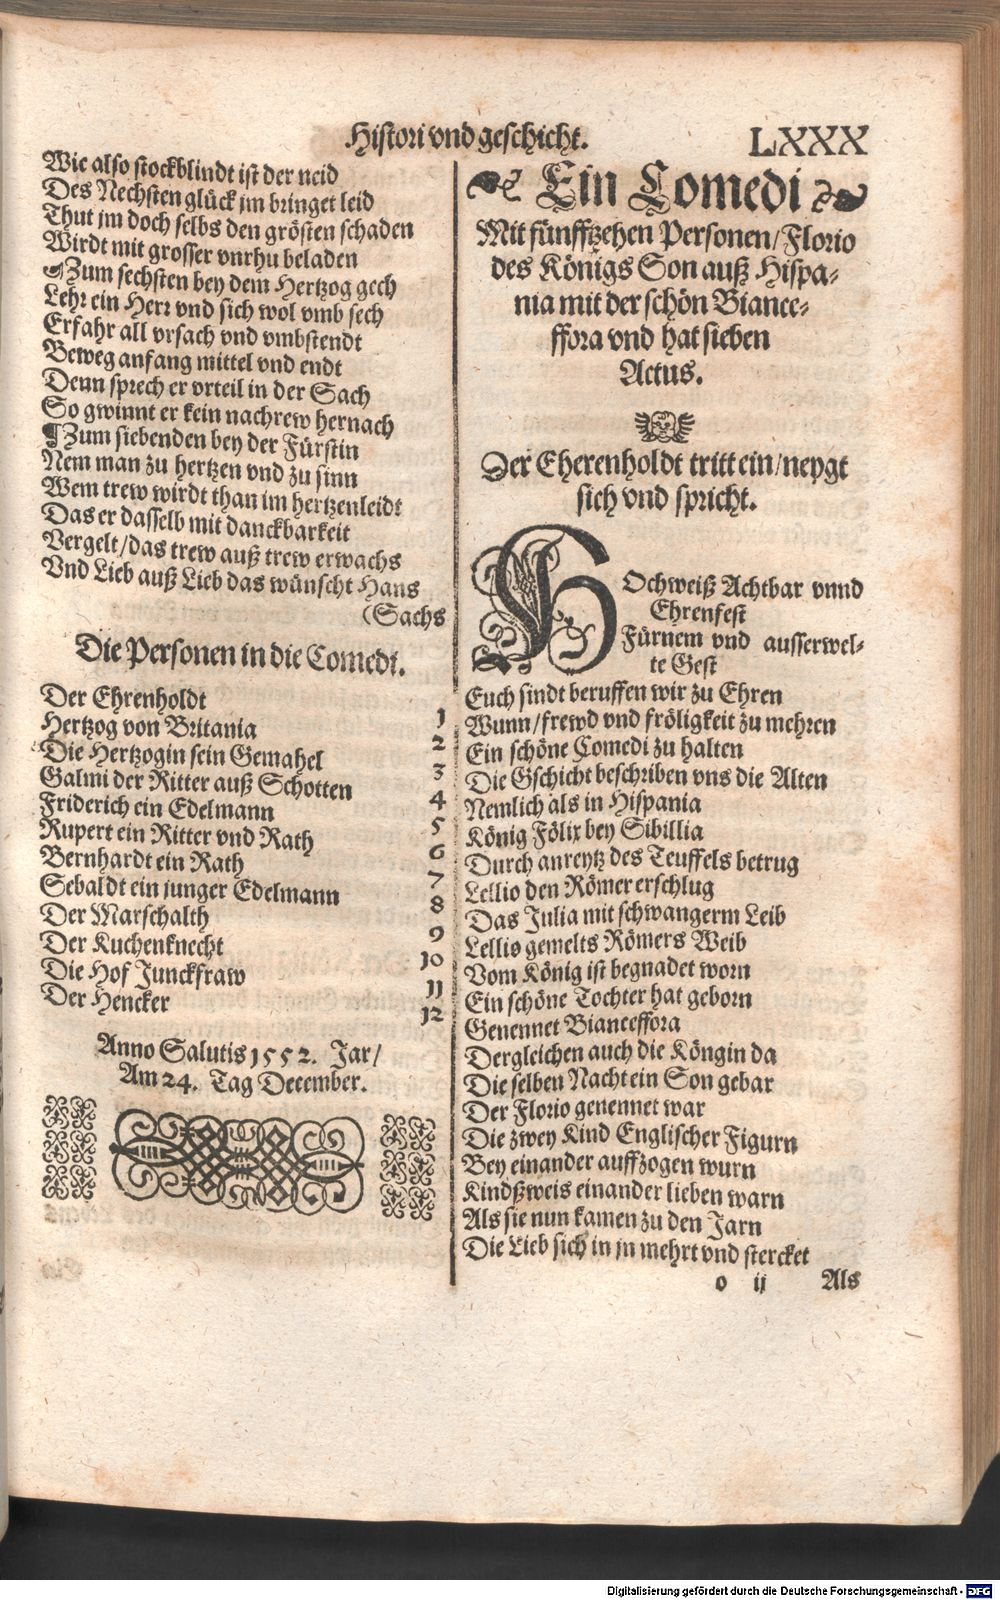 Histori vnd geschicht. LXXX
Wie also stockblindt ist der neid
Des Nechsten glück jm bringet leid
Thut jm doch selbs den grösten schaden
Wirdt mit grosser vnrhu beladen
¶Zum sechsten bey dem Hertzog gech
Lehr ein Herr vnd sich wol vmb sech
Erfahr all vrsach vnd vmbstendt
Beweg anfang mittel vnd endt
Denn sprech er vrteil in der Sach
So gwinnt er kein nachrew hernach
¶Zum siebenden bey der Fürstin
Nem man zu hertzen vnd zu sinn
Wem trew wirdt than im hertzenleidt
Das er dasselb mit danckbarkeit
Vergelt/das trew auß trew erwachs
Vnd Lieb auß Lieb das wünscht Hans
(Sachs
Die Personen in die Comedi.
Der Ehrenholdt 1
Hertzog von Britania 2
Die Hertzogin sein Gemahel 3
Galmi der Ritter auß Schotten 4
Friderich ein Edelmann 5
Rupert ein Ritter vnd Rath 6
Bernhardt ein Rath 7
Sebaldt ein junger Edelmann 8
Der Marschalth 9
Der Kuchenknecht 10
Die Hof Junckfraw 11
Der Hencker 12
Anno Salutis 1552. Jar/
Am 24. Tag December.
Ein Comedi
Mit fünffzehen Personen/Florio
des Königs Son auß Hispa-
nia mit der schön Biance-
ffora vnd hat sieben
Actus.
Der Eherenholdt tritt ein/neygt
sich vnd spricht.
HOchweiß Achtbar vnnd
Ehrenfest
Fürnem vnd ausserwel-
te Gest
Euch sindt beruffen wir zu Ehren
Wunn/frewd vnd fröligkeit zu mehren
Ein schöne Comedi zu halten
Die Gschicht beschriben vns die Alten
Nemlich als in Hispania
König Fölix bey Sibillia
Durch anreytz des Teuffels betrug
Lellio den Römer erschlug
Das Julia mit schwangerm Leib
Lellio gemelts Römers Weib
Vom König ist begnadet worn
Ein schöne Tochter hat geborn
Genennet Bianceffora
Dergleichen auch die Köngin da
Die selben Nacht ein Son gebar
Der Florio genennet war
Die zwey Kind Englischer Figurn
Bey einander auffzogen wurn
Kindßweis einander lieben warn
Als sie nun kamen zu den Jarn
Die Lieb sich in jn mehrt vnd stercket
o ij Als
Digitalisierung gefördert durch die Deutsche Forschungsgemeinschaft - DFG